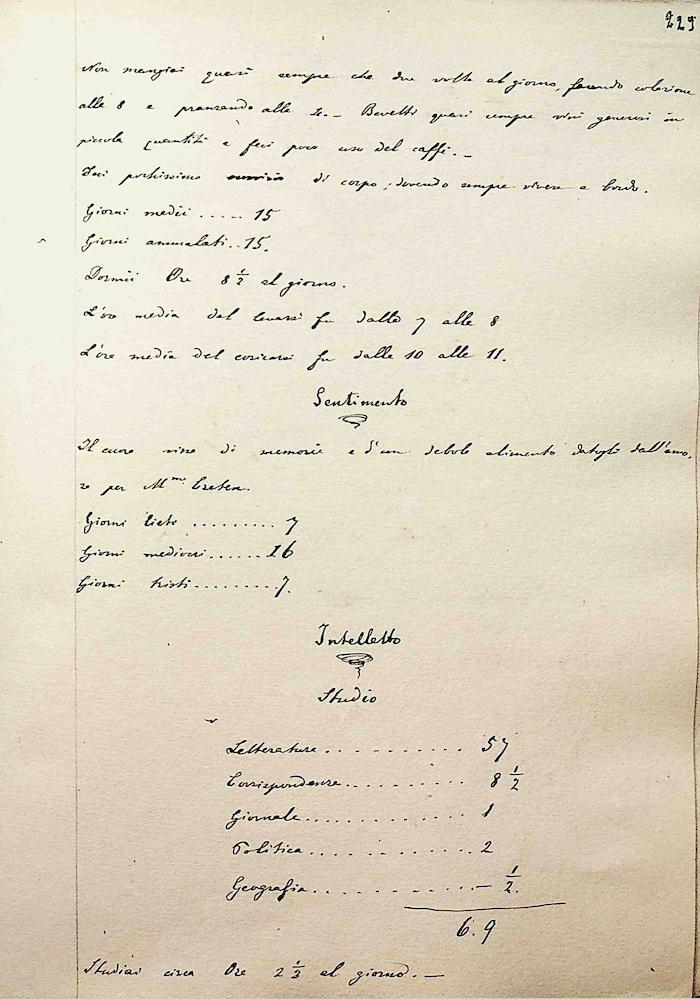 229
Non mangiai quasi sempre che due volte al giorno, facendo colazione
alle 8 e pranzando alle 4. - Bevetti quasi sempre vini generosi in
piccola quantità e feci poco uso del caffè. -
Feci pochissimo di corpo; dovendo sempre vivere a bordo.
Giorni medii ..... 15
Giorni ammalati .. 15.
Dormii Ore 8 1/2 al giorno.
L'ora media del levarsi fu dalle 7 alle 8
L'ora media del coricarsi fu dalle 10 alle 11.
Sentimento
Il cuore visse di memorie e d'un debole alimento datogli dall'amo-
re per Mme
Giorni lieti ......... 7
Giorni mediocri ...... 16
Giorni tristi ........ 7.
Intelletto
Studio
Letteratura .......... 57
Corrispondenza .......... 8 1/2
Giornale .......... 1
Politica .......... 2
Geografia .......... — 1/2.
6.9
Studiai circa Ore 2 1/3 al giorno. —